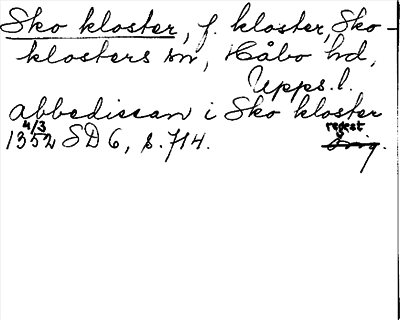 Sko kloster, f. kloster, Sko-
klosters sn, Håbo hd,
Upps. l.
abbedissan i Sko kloster
4/3 regest
1352 SD 6, s. 714. Orig.